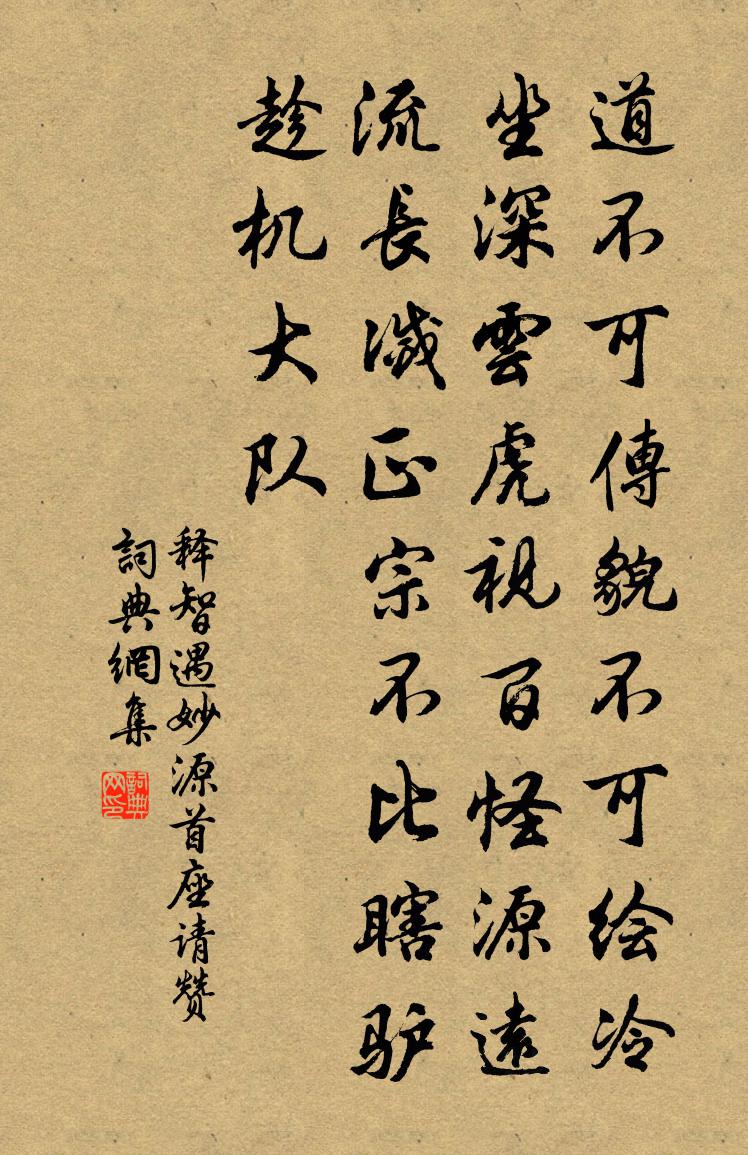 道不可傳貌不可绘冷
坐深雲虎視百怪源遠
流長滅正宗不比瞎驴
趁机大队
释智遇妙源首座请赞
詞典網集
詞典网印